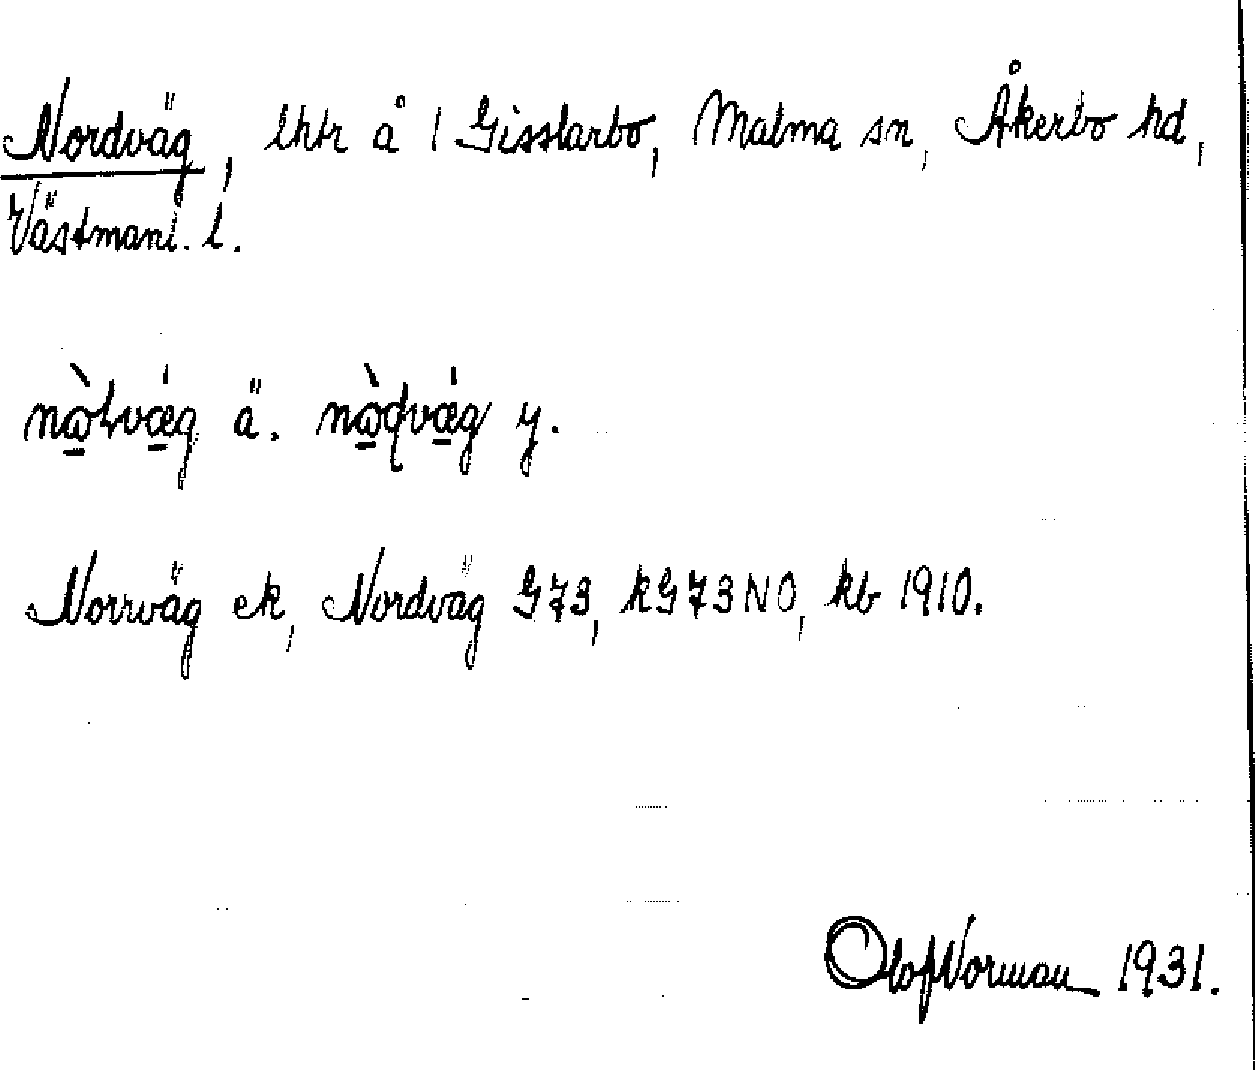 Nordväg, lhtr å 1 Gisslarbo, Malma sn, Åkerbo hd,
Västmanl. l.
ä. y.
Norrväg ek, Nordväg G73, kG73NO, kb 1910.
Olof Norman 1931.